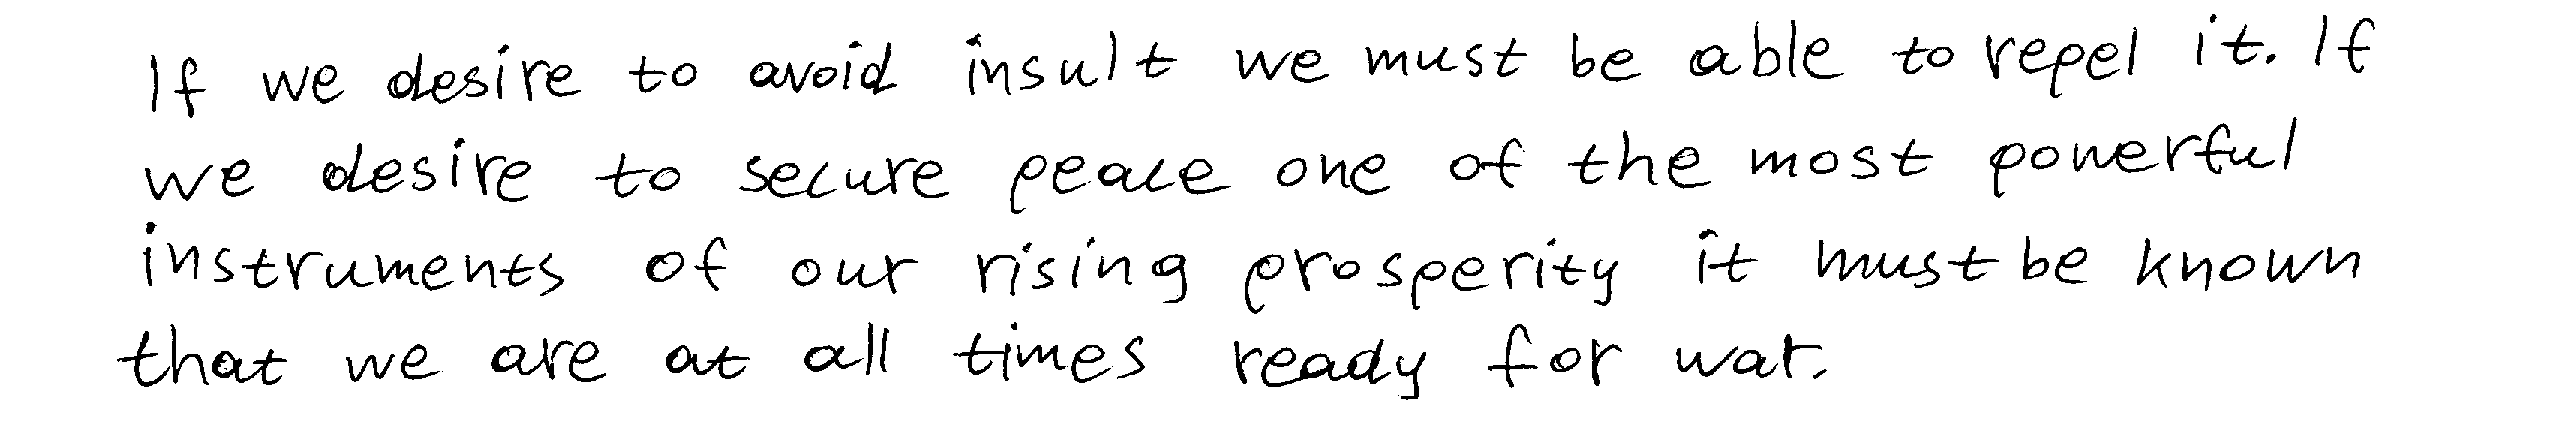 If we desire to avoid insult we must be able to repel it. If
we desire to secure peace one of the most powerful
instruments of our rising prosperity it must be known
that we are at all times ready for war.